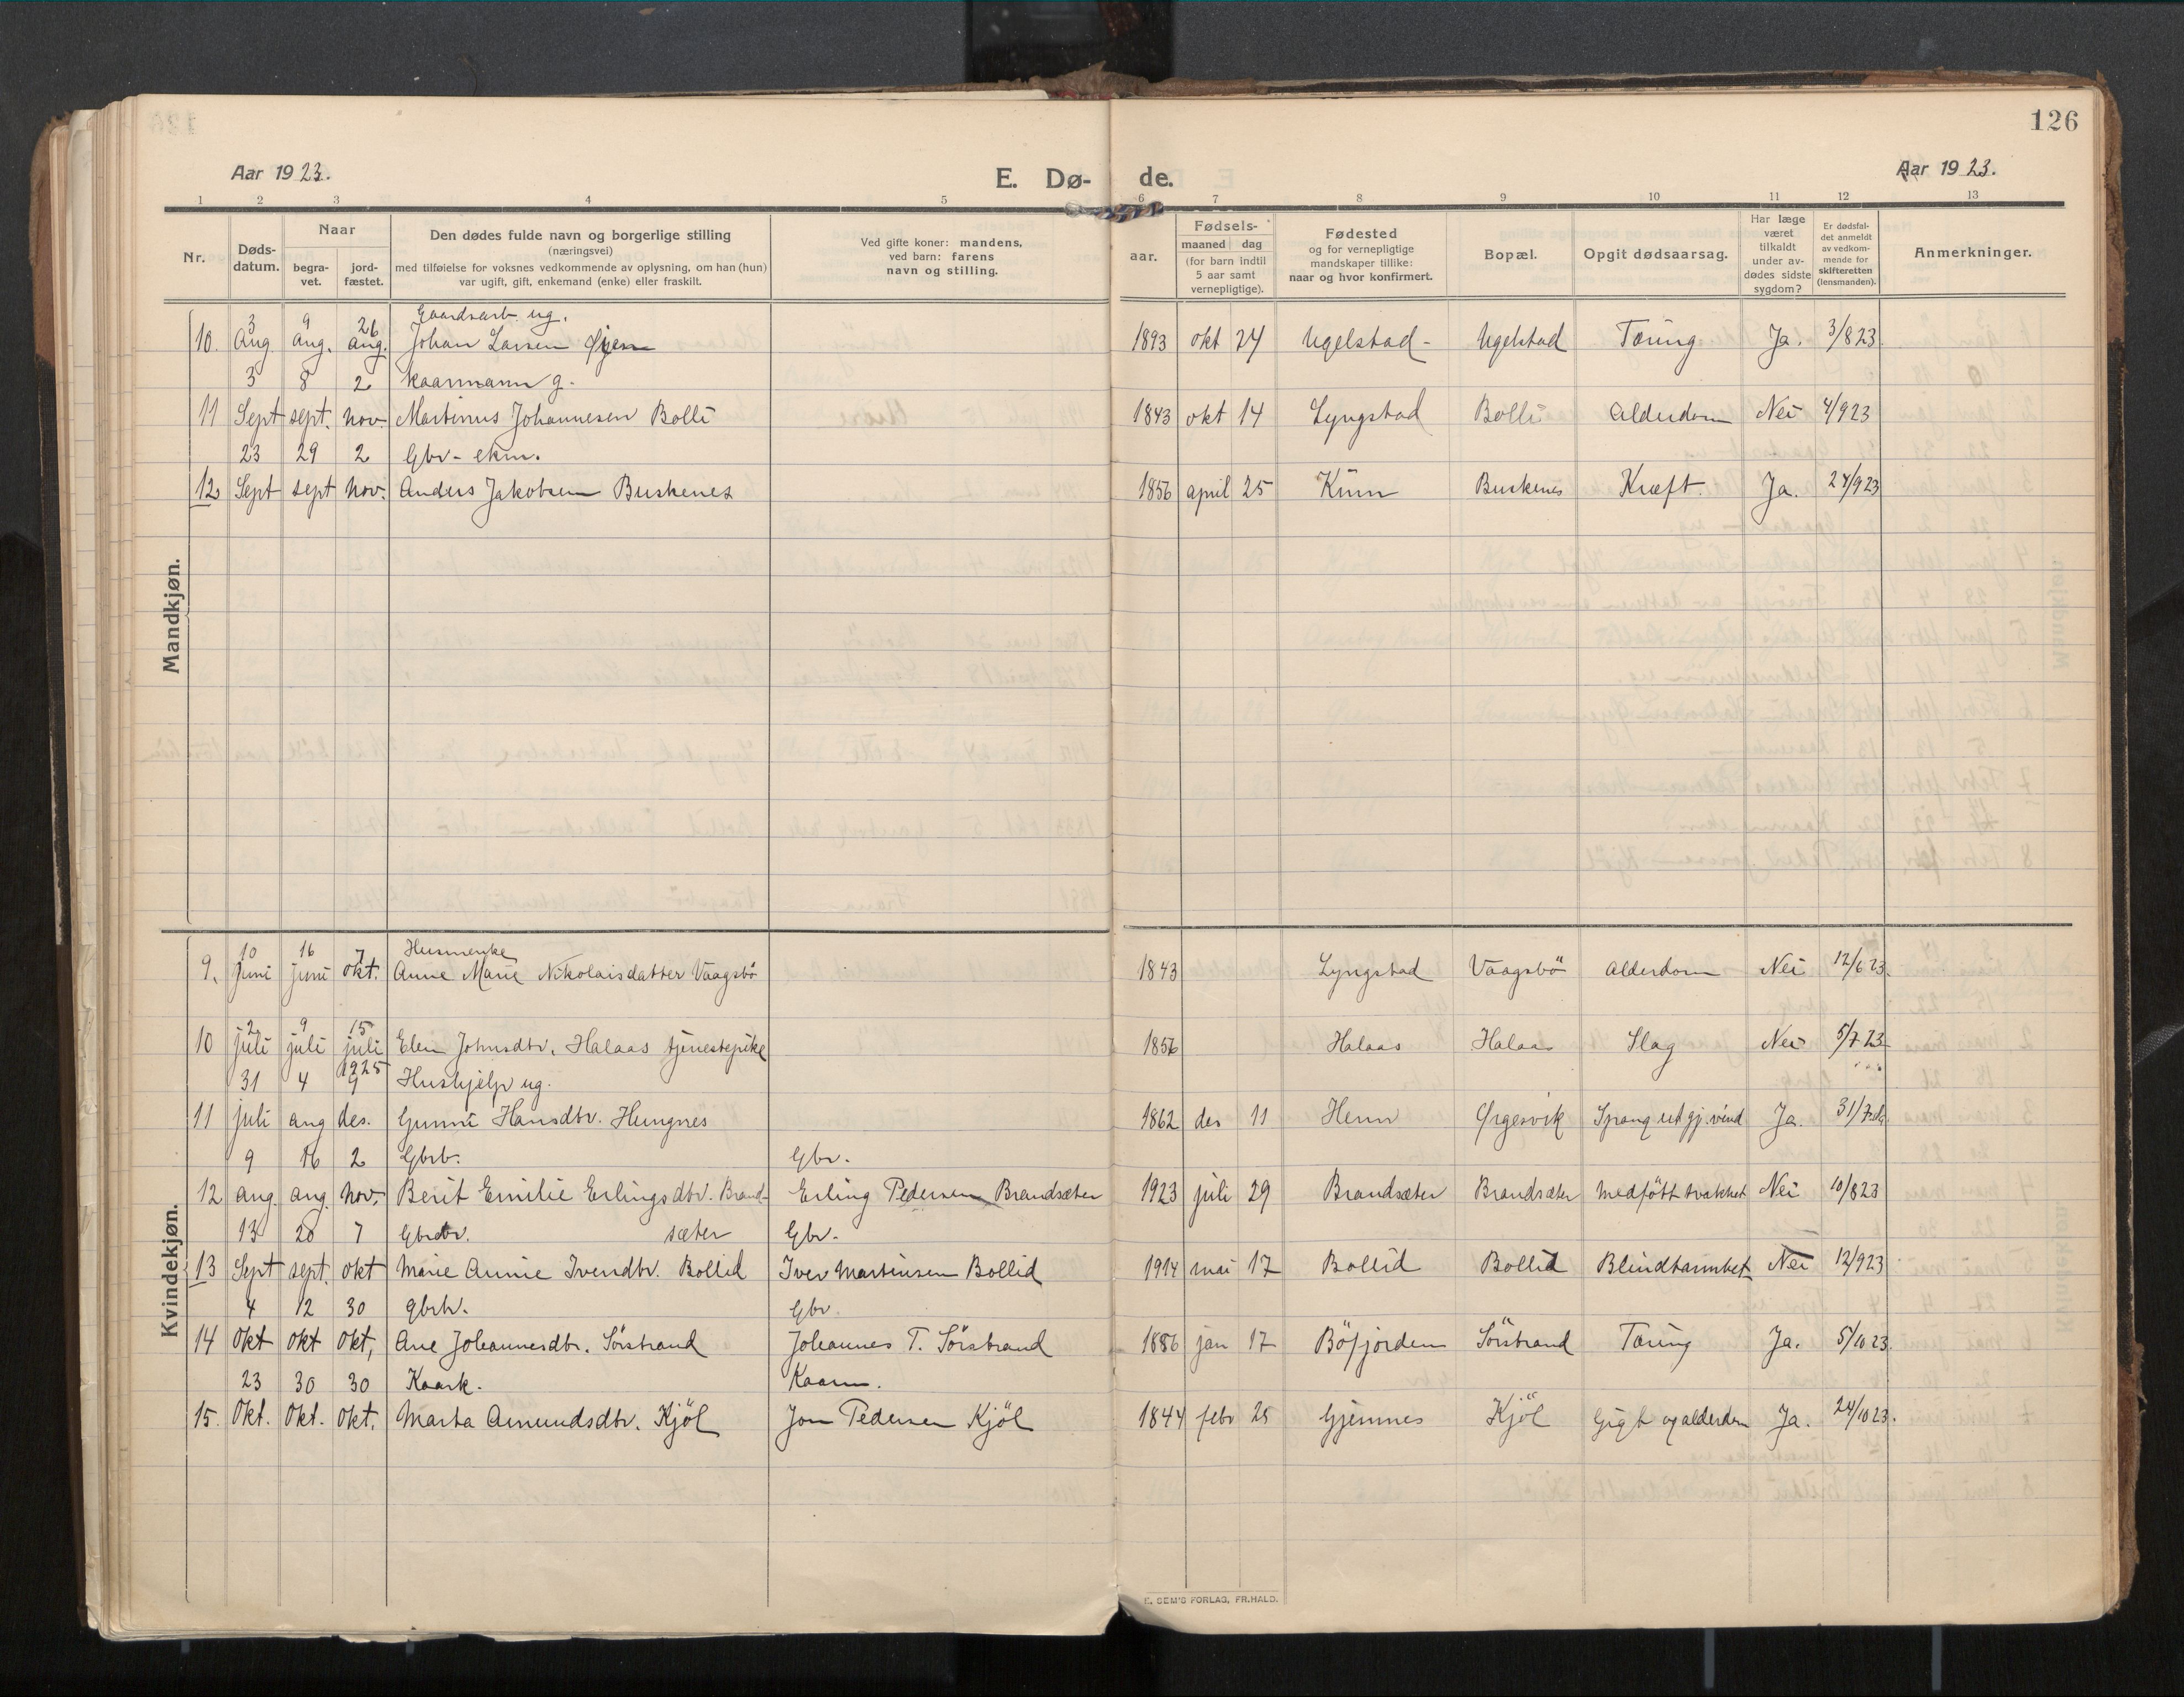 126
Aar 1923.
E. Dø-
de.
Aar 1923.
1 2 3 4 5 6 7 8 9 10 11 12 13
Nr.
Døds-
datum.
Naar
begra-
vet.
jord-
fæstet.
Den dødes fulde navn og borgerlige stilling
(næringsvei)
med tilføielse for voksnes vedkommende av oplysning, om han (hun)
var ugift, gift, enkemand (enke) eller fraskilt.
Ved gifte koner: mandens,
ved barn: farens
navn og stilling.
aar.
Fødsels-
maaned dag
(for barn indtil
5 aar samt
vernepligtige).
Fødested
og for vernepligtige
mandskaper tillike:
naar og hvor konfirmert.
Bopæl.
Opgit dødsaarsag.
Har læge
været
tilkaldt
under av-
dødes sidste
sygdom?
Er dødsfal-
det anmeldt
av vedkom-
mende for
skifteretten
(lensmanden).
Anmerkninger.
Mandkjøn.
3 9 26 Gaardsarb. ug.
10. Aug aug. aug. Johan Larsen Øyen 1893 okt 24 Ugelstad- Ugelstad Tæring Ja. 3/8 23
3 8 2 kaarmann g.
11 Sept sept. nov. Martinus Johannesen Bolli 1843 okt 14 Lyngstad Bolli Alderdom Nei 4/9 23
23 29 2 Gbr- ekm.
12 Sept sept nov. Anders Jakobsen Buskenes 1856 april 25 Kinn Buskenes Kræft. Ja. 24/9 23
Kvindekjøn.
10 16 7 Husmenke
9. juni juni okt. Anne Marie Nikolaisdatter Vaagsbö 1843 Lyngstad Vaagsbö Alderdom Nei 12/6 23.
2 9 15
10 juli juli juli Elen Johnsdtr. Halaas tjenestepike 1856 Halaas Halaas Slag Nei 5/7 23
1925
31 4 9 Hushjelp ug.
11 juli aug des. Gunni Hansdtr. Hungnes 1862 des 11 Henn Ørgesvik Sprang ut gj. vind Ja. 31/7
9 16 2 Gbrb. Gbr.
12 aug. aug. nov. Berit Emilie Erlingsdtr. Brand- Erling Pedersen Brandsæter 1923 juli 29 Brandsæter Brandsæter medfött svakhet Nei 10/8 23
13 20 7 Gbrdtr. sæter Gbr.
13 Sept sept. okt Marie Annie Iversdtr. Bollid Iver Martinsen Bollid 1914 mai 17 Bollid Bollid Blindtarmbet. Nei 12/9 23
4 12 30 gbrk. Gbr.
14 Okt okt okt, Ane Johannesdtr. Sörstrand Johannes T. Sörstrand 1886 jan 17 Böfjorden Sörstrand Tæring Ja. 5/10 23.
23 30 30 Kaark. Kaarm.
15. Okt. Okt. Okt. Marta Amundsdtr. Kjöl Jon Pedersen Kjöl 1844 febr 25 Gjemnes Kjöl Gigt og alderdom Ja. 24/10 23.
E. SEM'S FORLAG, FR.HALD.